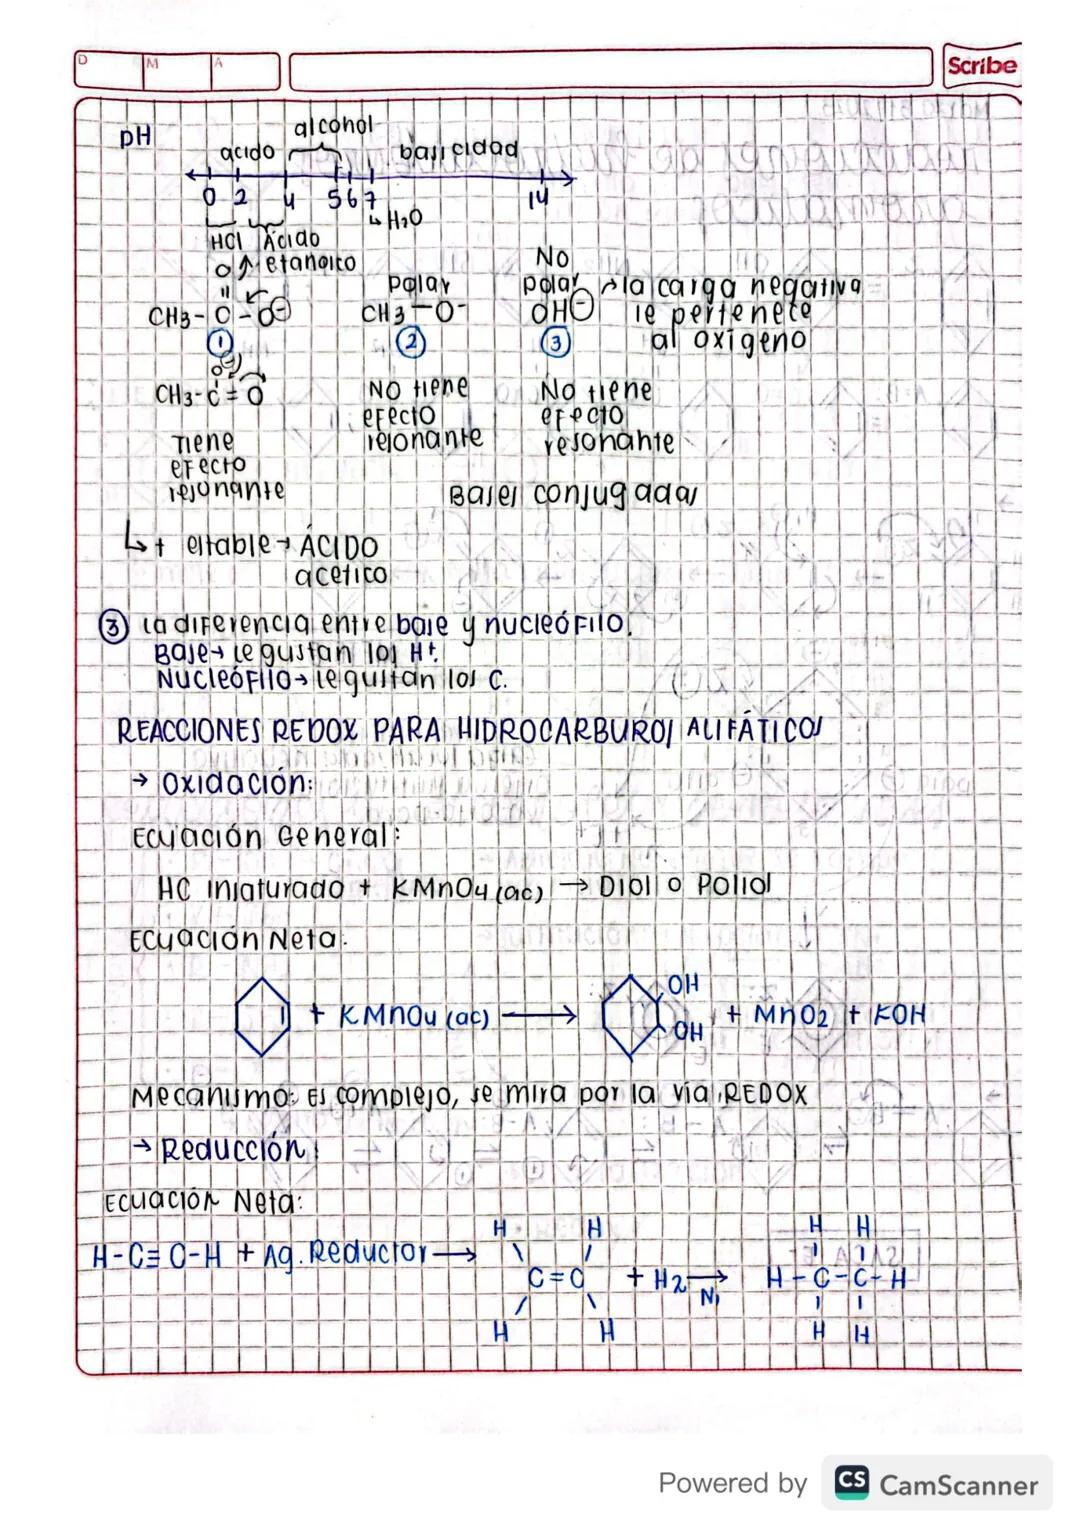 D M A
Scribe
pH
alcohol
acido basicidad
0 2 4 5 6 7 14
↳ H₂O
HCl Ácido
etanoico
O
CH3-C-O⊖
①
polar
CH3-O-
②
No
polar
OH⊖
③
→ la carga negativa
le pertenece
al oxígeno
O⊖
CH3-C=O
Tiene
efecto
resonante
NO tiene
efecto
resonante
No tiene
efecto
resonante
Bases conjugadas
↳ + estable → ÁCIDO
acetico
③ La diferencia entre base y nucleófilo.
Base → le gustan los H⁺.
Nucleófilo → le gustan los C.
REACCIONES REDOX PARA HIDROCARBUROS ALIFÁTICOS
→ Oxidación:
Ecuación General:
HC insaturado + KMnO4 (ac) → Diol o Poliol
Ecuación Neta:
+ KMnO4 (ac) → OH OH + MnO2 + KOH
Mecanismo: Es complejo, se mira por la vía REDOX
→ Reducción:
Ecuación Neta:
H H H H
H-C≡C-H + Ag. Reductor →
C=C + H2 → H-C-C-H
Ni
H H H H
Powered by CS CamScanner